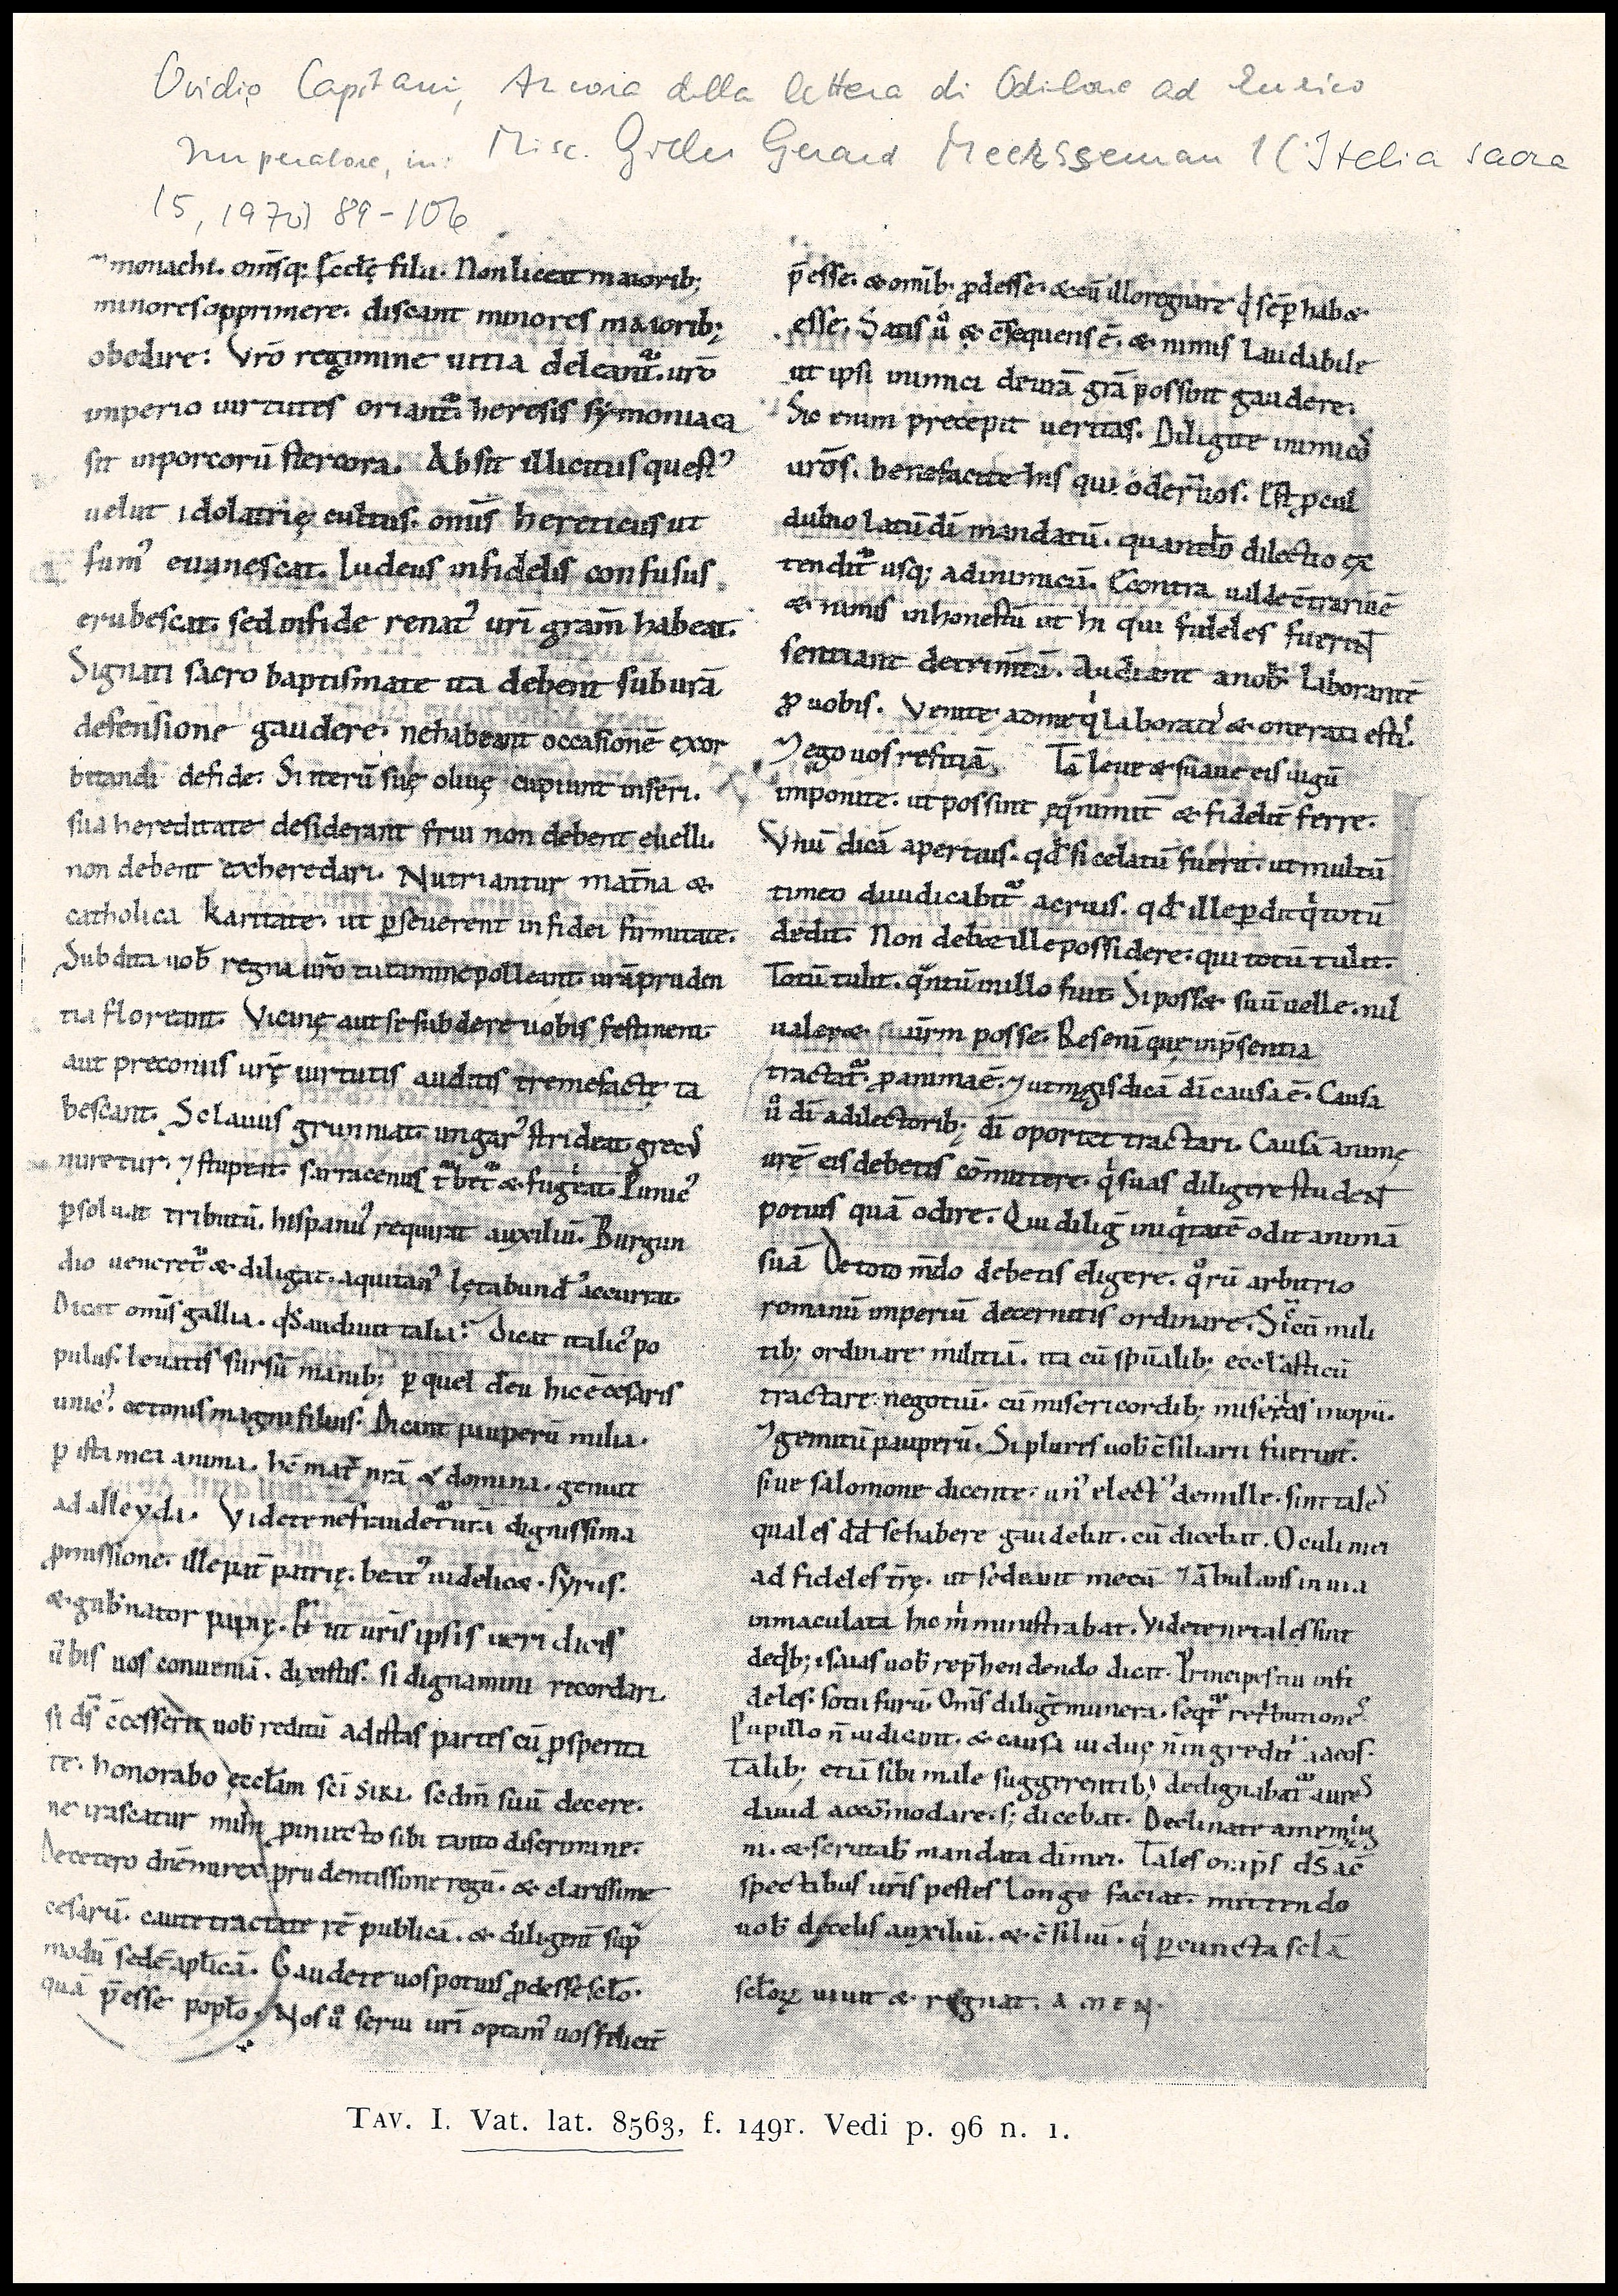 Ovidio Capitani, Ancora della lettera di Odilone ad Enrico
Imperatore, in: Misc. Gilles Gerard Meersseman 1 (Italia sacra
15, 1970) 89-106
monachi. om̄sq; ęcclę filii. Non liceat maiorib;
minores opprimere. discant minores maioribː
obedire: Vr̄o regimine uitia deleant᷑. ur̄o
imperio uirtutes oriant᷑. heresis symoniaca
sit in porcorū stercora. Absit illicitus quest᾽
uelut idolatrię cultus. om̄is hereticus ut
fum᾽ euanescat. Iudeus infidelis confusus
erubescat. sed in fide renat᾽ ur̄i gram̄ habeat.
Signati sacro baptismate ita debent sub urā
defensione gaudere. ne habeant occasionē exor
bitandi de fide: Si iterū suę oliuę cupiunt inseri.
sua hereditate desiderant frui non debent euelli.
non debent exheredari. Nutriantur mat̄na &
catholica karitate. ut ꝑseuerent in fidei firmitate.
Subdita uob̄ regna ur̄o tutamine polleant. ur̄a pruden
tia floreant. Vicinę aut se subdere uobis festinent.
aut preconiis ur̄ę uirtutis auditis tremefactę ta
bescant. Sclauus grunniat. ungar᾽ strideat. grec᾽
miretur. ⁊ stupeat. sarracenus t᷑bet᷑ & fugeat. Punic᾽
ꝑsoluat tributū. hispan᾽ requirat auxiliū. Burgun
dio ueneret᷑ & diligat. aquitan᾽ lętabund᾽ accurrat.
Dicat om̄is gallia. qͥs audiuit talia? Dicat italic᾽ po
pulus. leuatis sursū manib; ꝑ quel deu hic ē cesaris
unic᾽. octonis magni filius. Dicant pauperū milia.
ꝑ ista mea anima. hē mat̄ nr̄a & domina. genuit
adalleyda. Videte ne fraudet᷑ ur̄a dignissima
ꝓmissione. ille pat̄ patrię. beat᾽ uidelic&. syrus.
& gub̄nator papię. Et ut ur̄is ipsis ueridicis
ūbis uos conueniā. dixistis. si dignamini recordari.
si d̄s c̄cesserit uob̄ reditū ad istas partes cū ꝓsperita
te. honorabo ęccłam sc̄i SIRI. sed̄m suū decere.
ne irascatur mihi ꝓ inuicto sibi tanto discrimine.
De cetero dn̄e mi rex prudentissime regū. & clarissime
cesarū. caute tractate rē publicā. & diligent̄ sup̄
modū sedē apłicā. Gaudete uos potius ꝓdesse scło.
quā p̄esse popło. Nos ů serui ur̄i optam᾽ uos felicit̄
p̄esse. & om̄ib; ꝓdesse. & cū illo regnare qͥ sēꝑ hab&
esse. Satis ů & c̄sequens ē. & nimis laudabile
ut ipsi inimici de ur̄a grā possint gaudere.
Sic enim precepit ueritas. Diligite inimicos
ur̄os. benefacite his qui oder̄ uos. Est ꝓcul
dubio latū dī mandatū. quando dilectio ex
tendit᷑ usq; ad inimicū. Econtra ualde c̄trariū ē
& nimis inhonestū ut hi qui fideles fuerint
sentiant detrim̄tā. Audiant a nob̄ laborantē
ꝓ uobis. Venite ad me qͥ laboratis & onerati estis.
⁊ ego uos reficiā. Tā leue & suaue eis iugū
imponite. ut possint ęqͣnimit̄ & fidelit̄ ferre.
Vnū dicā apertius. qd̄ si celatū fuerit. ut multū
timeo diiudicabit᷑ acrius. qd̄ ille ꝑdit qͥ totū
dedit. Non deb& ille possidere. qui totū tulit.
Totū tulit. qͣntū in illo fuit. Si poss& suū uelle. nil
ualer& ur̄m posse. Res eni que in p̄sentia
tractat᷑. ꝓ anima ē. ⁊ ut magis dicā dī causa ē. Causa
ů dī a dilectorib; dī oportet tractari. Causā animę
ur̄ę eis debetis cōmittere. qͥ suas diligere student
potius quā odire. Qui diliḡ iniqͥtatē odit animā
suā. De toto m̄do debetis eligere. qͦrū arbitrio
romanū imperiū decernitis ordinare. Sic cū mili
tib; ordinare militiā. ita cū sp̄ualib; eccl̄asticū
tractare negotiū. cū misericordib; miserias inopū.
⁊ gemitū pauperū. Si plures uob̄ c̄siliarii fuerint.
siue salomone dicente. un᾽ elect᾽ de mille. sint tales
quales dd̄ se habere gaudebat. cū dicebat. Oculi mei
ad fideles tr̄ę. ut sedeant mecū. Ābulans in uia
inmaculata hic m̄ ministrabat. Videte ne tales sint
de qͥb; isaias uob̄ rep̄hendendo dicit. Principes tui infi
deles. socii furū. Om̄s diligt̄ munera. seqt᷑ ret̄butiones.
Pupillo n̄ iudicant. & causa uiduę n̄ ingredit᷑ ad eos.
Talib; etiā sibi male suggerentib; dedignabat᷑ aures
dauid accōmodare. s; dicebat. Declinate a me malig
ni. & scrutab̄ mandata di mei. Tales om̄ips d̄s a c̄
spectibus ur̄is pestes longe faciat. mittendo
uob̄ de celis auxiliū. & c̄siliū. qͥ ꝑ cuncta sclā
scłoꝝ uiuit & regnat. AMEN.
TAV. I. Vat. lat. 8563, f. 149r. Vedi p. 96 n. 1.